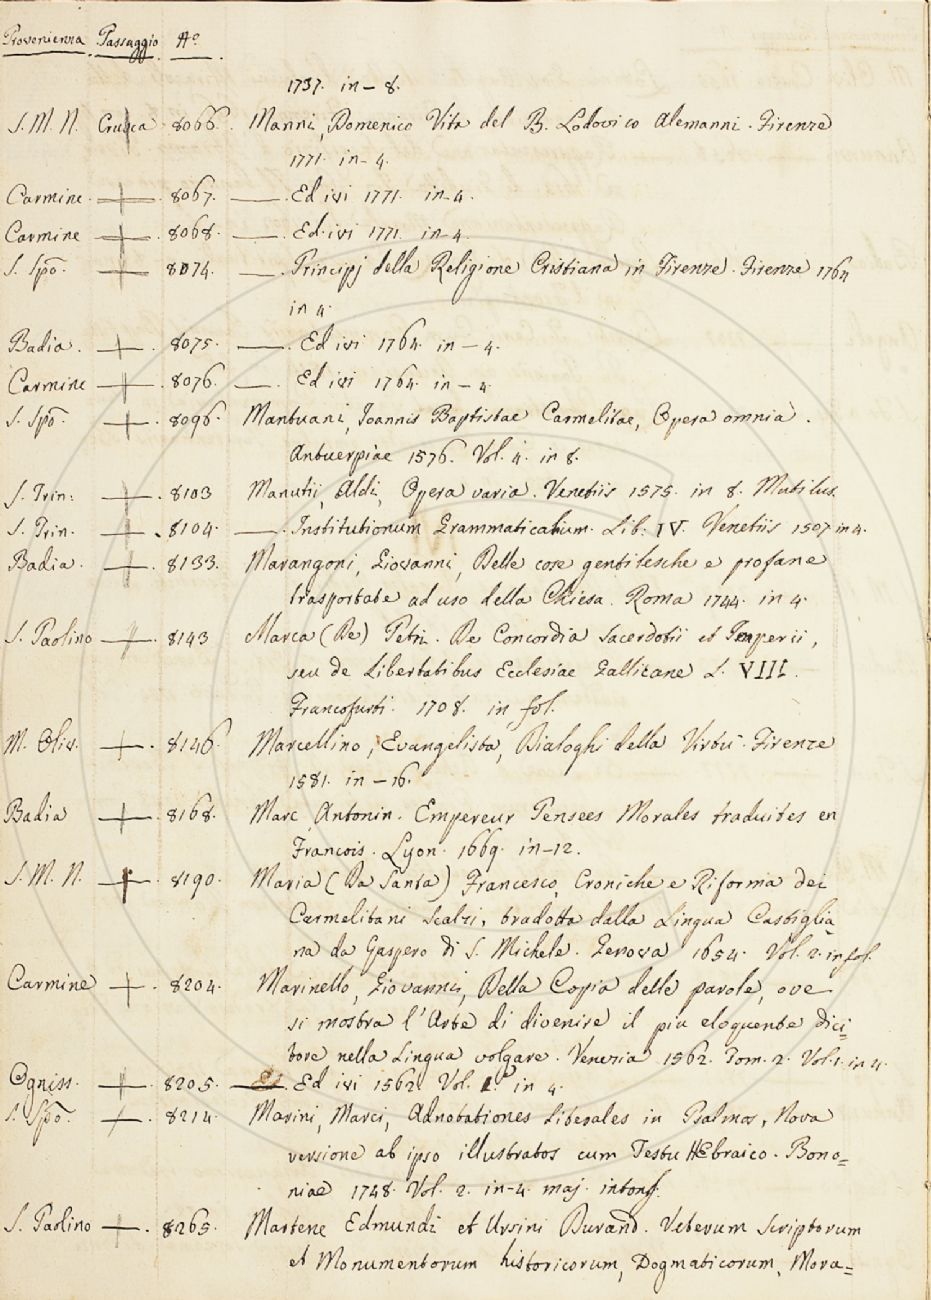 Provenienza Passaggio N.o
1737. in - 8.
S. M. N. Crusca 8066. Manni, Domenico Vita del B. Lodovico Alemanni. Firenze
1771. in - 4.
Carmine. 8067. —. Ed ivi 1771. in - 4.
Carmine 8068. —. Ed. ivi 1771. in - 4.
S. Spõ. 8074. —. Principj della Religione Cristiana in Firenze. Firenze 1764
in 4.
Badia. 8075. —. Ed ivi 1764. in - 4.
Carmine 8076. —. Ed ivi 1764. in - 4.
S. Spõ. 8096. Mantuani, Joannis Baptistae Carmelitae, Opera omnia.
Antuerpiae 1576. Vol. 4. in 8.
S. Trin: 8103 Manutii, Aldi, Opera varia. Venetiis 1575. in 8. Mutilus.
S. Trin. 8104. —. Institutionum Grammaticalium. Lib. IV. Venetiis 1507 in 4.
Badia. 8133. Marangoni, Giovanni, Delle cose gentilesche e profane
trasportate ad uso della Chiesa. Roma 1744. in 4.
S. Paolino 8143 Marca (De) Petri. De Concordia Sacerdotii et Imperii,
seu de Libertatibus Ecclesiae Gallicane L. VIII.
Francofurti. 1708. in fol.
M. Oliv. 8146. Marcellino, Evangelista, Dialoghi della Virtù. Firenze
1581. in - 16.
Badia 8168. Marc Antonin. Empereur Pensees Morales traduites en
Francois. Lyon. 1669. in - 12.
S. M. N. 8190. Maria (Da Santa) Francesco, Croniche e Riforma dei
Carmelitani Scalzi, tradotta dalla Lingua Castiglia
na da Gaspero di S. Michele. Genova 1654. Vol. 2. in fol.
Carmine 8204. Marinello, Giovanni, Della Copia delle parole, ove
si mostra l'Arte di divenire il piu eloquente dici=
tore nella Lingua volgare. Venezia 1562. Tom. 2. Vol. 1. in 4.
Ogniss. 8205. —. Ed ivi 1562. Vol. 1.o in 4.
S. Spõ. 8214. Marini, Marci, Adnotationes Literales in Psalmos, Nova
versione ab ipso illustratos cum Testu HEbraico. Bono=
niae 1748. Vol. 2. in - 4. maj. intons.
S. Paolino 8265. Martene Edmundi et Ursini Durand. Veterum Scriptorum
et Monumentorum historicorum, Dogmaticorum, Mora=